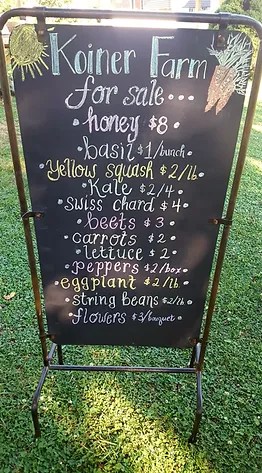 Koiner Farm
for sale...
• honey $8 •
• basil $1/bunch •
• Yellow squash $2/lb •
• Kale $2/4 •
• swiss chard $4 •
• beets $3 •
• carrots $2 •
• lettuce $2 •
• peppers $2/box •
• eggplant $2/lb •
• string beans $2/lb •
• flowers $3/bouquet •